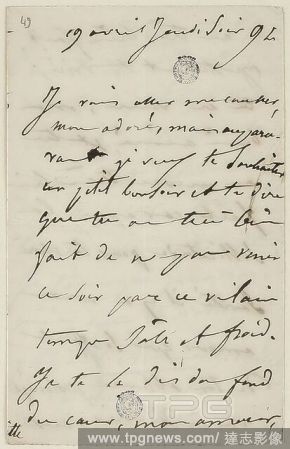 49
19 avril Jeudi soir 9 h
Je vais aller me coucher,
mon adoré, mais aupara-
vant je veux te souhaiter
un p'tit bonsoir et te dire
que tu as très bien
fait de ne pas venir
ce soir par ce vilain
temps sale et froid.
Je te le dis du fond
du cœur, mon amour,
TPG
www.tpgnews.com/達志影像